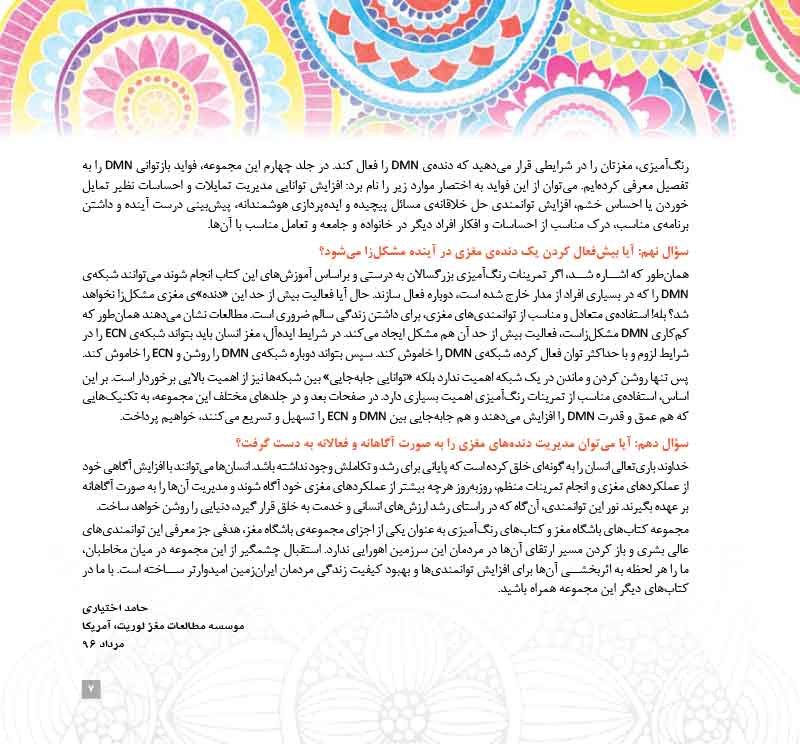 رنگ‌آمیزی، مغزتان را در شرایطی قرار می‌دهید که دنده‌ی DMN را فعال کند. در جلد چهارم این مجموعه، فواید بازتوانی DMN را به
تفصیل معرفی کرده‌ایم. می‌توان از این فواید به اختصار موارد زیر را نام برد: افزایش توانایی مدیریت تمایلات و احساسات نظیر تمایل
خوردن یا احساس خشم، افزایش توانمندی حل خلاقانه‌ی مسائل پیچیده و ایده‌پردازی هوشمندانه، پیش‌بینی درست آینده و داشتن
برنامه‌ی مناسب، درک مناسب از احساسات و افکار افراد دیگر در خانواده و جامعه و تعامل مناسب با آن‌ها.
سؤال نهم: آیا بیش‌فعال کردن یک دنده‌ی مغزی در آینده مشکل‌زا می‌شود؟
همان‌طور که اشاره شد، اگر تمرینات رنگ‌آمیزی بزرگسالان به درستی و براساس آموزش‌های این کتاب انجام شوند می‌توانند شبکه‌ی
DMN را که در بسیاری افراد از مدار خارج شده است، دوباره فعال سازند. حال آیا فعالیت بیش از حد این «دنده»ی مغزی مشکل‌زا نخواهد
شد؟ بله! استفاده‌ی متعادل و مناسب از توانمندی‌های مغزی، برای داشتن زندگی سالم ضروری است. مطالعات نشان می‌دهند همان‌طور که
کم‌کاری DMN مشکل‌زاست، فعالیت بیش از حد آن هم مشکل ایجاد می‌کند. در شرایط ایده‌آل، مغز انسان باید بتواند شبکه‌ی ECN را در
شرایط لزوم و با حداکثر توان فعال کرده، شبکه‌ی DMN را خاموش کند. سپس بتواند دوباره شبکه‌ی DMN را روشن و ECN را خاموش کند.
پس تنها روشن کردن و ماندن در یک شبکه اهمیت ندارد بلکه «توانایی جابه‌جایی» بین شبکه‌ها نیز از اهمیت بالایی برخوردار است. بر این
اساس، استفاده‌ی مناسب از تمرینات رنگ‌آمیزی اهمیت بسیاری دارد. در صفحات بعد و در جلدهای مختلف این مجموعه، به تکنیک‌هایی
که هم عمق و قدرت DMN را افزایش می‌دهند و هم جابه‌جایی بین DMN و ECN را تسهیل و تسریع می‌کنند، خواهیم پرداخت.
سؤال دهم: آیا می‌توان مدیریت دنده‌های مغزی را به صورت آگاهانه و فعالانه به دست گرفت؟
خداوند باری‌تعالی انسان را به گونه‌ای خلق کرده است که پایانی برای رشد و تکاملش وجود نداشته باشد. انسان‌ها می‌توانند با افزایش آگاهی خود
از عملکردهای مغزی و انجام تمرینات منظم، روزبه‌روز هرچه بیشتر از عملکردهای مغزی خود آگاه شوند و مدیریت آن‌ها را به صورت آگاهانه
بر عهده بگیرند. نور این توانمندی، آن‌گاه که در راستای رشد ارزش‌های انسانی و خدمت به خلق قرار گیرد، دنیایی را روشن خواهد ساخت.
مجموعه کتاب‌های باشگاه مغز و کتاب‌های رنگ‌آمیزی به عنوان یکی از اجزای مجموعه‌ی باشگاه مغز، هدفی جز معرفی این توانمندی‌های
عالی بشری و باز کردن مسیر ارتقای آن‌ها در مردمان این سرزمین اهورایی ندارد. استقبال چشمگیر از این مجموعه در میان مخاطبان،
ما را هر لحظه به اثربخشی آن‌ها برای افزایش توانمندی‌ها و بهبود کیفیت زندگی مردمان ایران‌زمین امیدوارتر ساخته است. با ما در
کتاب‌های دیگر این مجموعه همراه باشید.
حامد اختیاری
موسسه مطالعات مغز لوریت، آمریکا
مرداد ۹۶
۷